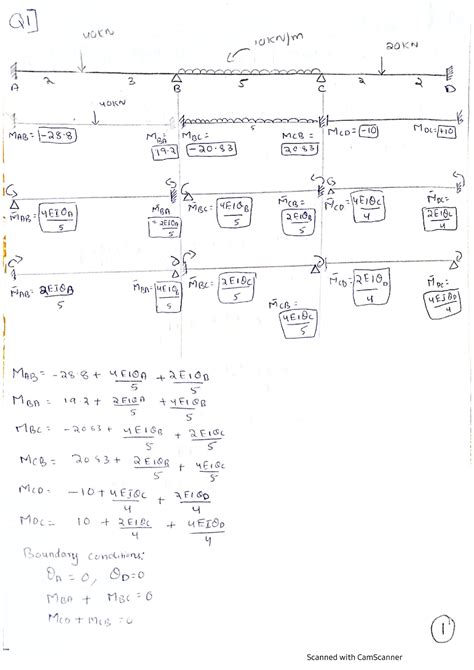 Q1]
40KN
10KN/m
20KN
A 2 3 B 5 C 2 2 D
40KN
5
MAB = -28.8
MBA = 19.2
MBC = -20.83
MCB = 20.83
MCD = -10
MDC = +10
M̄AB = 4EIθA/5
M̄BA = 2EIθA/5
M̄BC = 4EIθB/5
M̄CB = 2EIθB/5
M̄CD = 4EIθC/4
M̄DC = 2EIθC/4
M̄AB = 2EIθB/5
M̄BA = 4EIθB/5
M̄BC = 2EIθC/5
M̄CB = 4EIθC/5
M̄CD = 2EIθD/4
M̄DC = 4EIθD/4
MAB = -28.8 + 4EIθA/5 + 2EIθB/5
MBA = 19.2 + 2EIθA/5 + 4EIθB/5
MBC = -20.83 + 4EIθB/5 + 2EIθC/5
MCB = 20.83 + 2EIθB/5 + 4EIθC/5
MCD = -10 + 4EIθC/4 + 2EIθD/4
MDC = 10 + 2EIθC/4 + 4EIθD/4
Boundary conditions:
θA = 0, θD = 0
MBA + MBC = 0
MCD + MCB = 0
1
Scanned with CamScanner